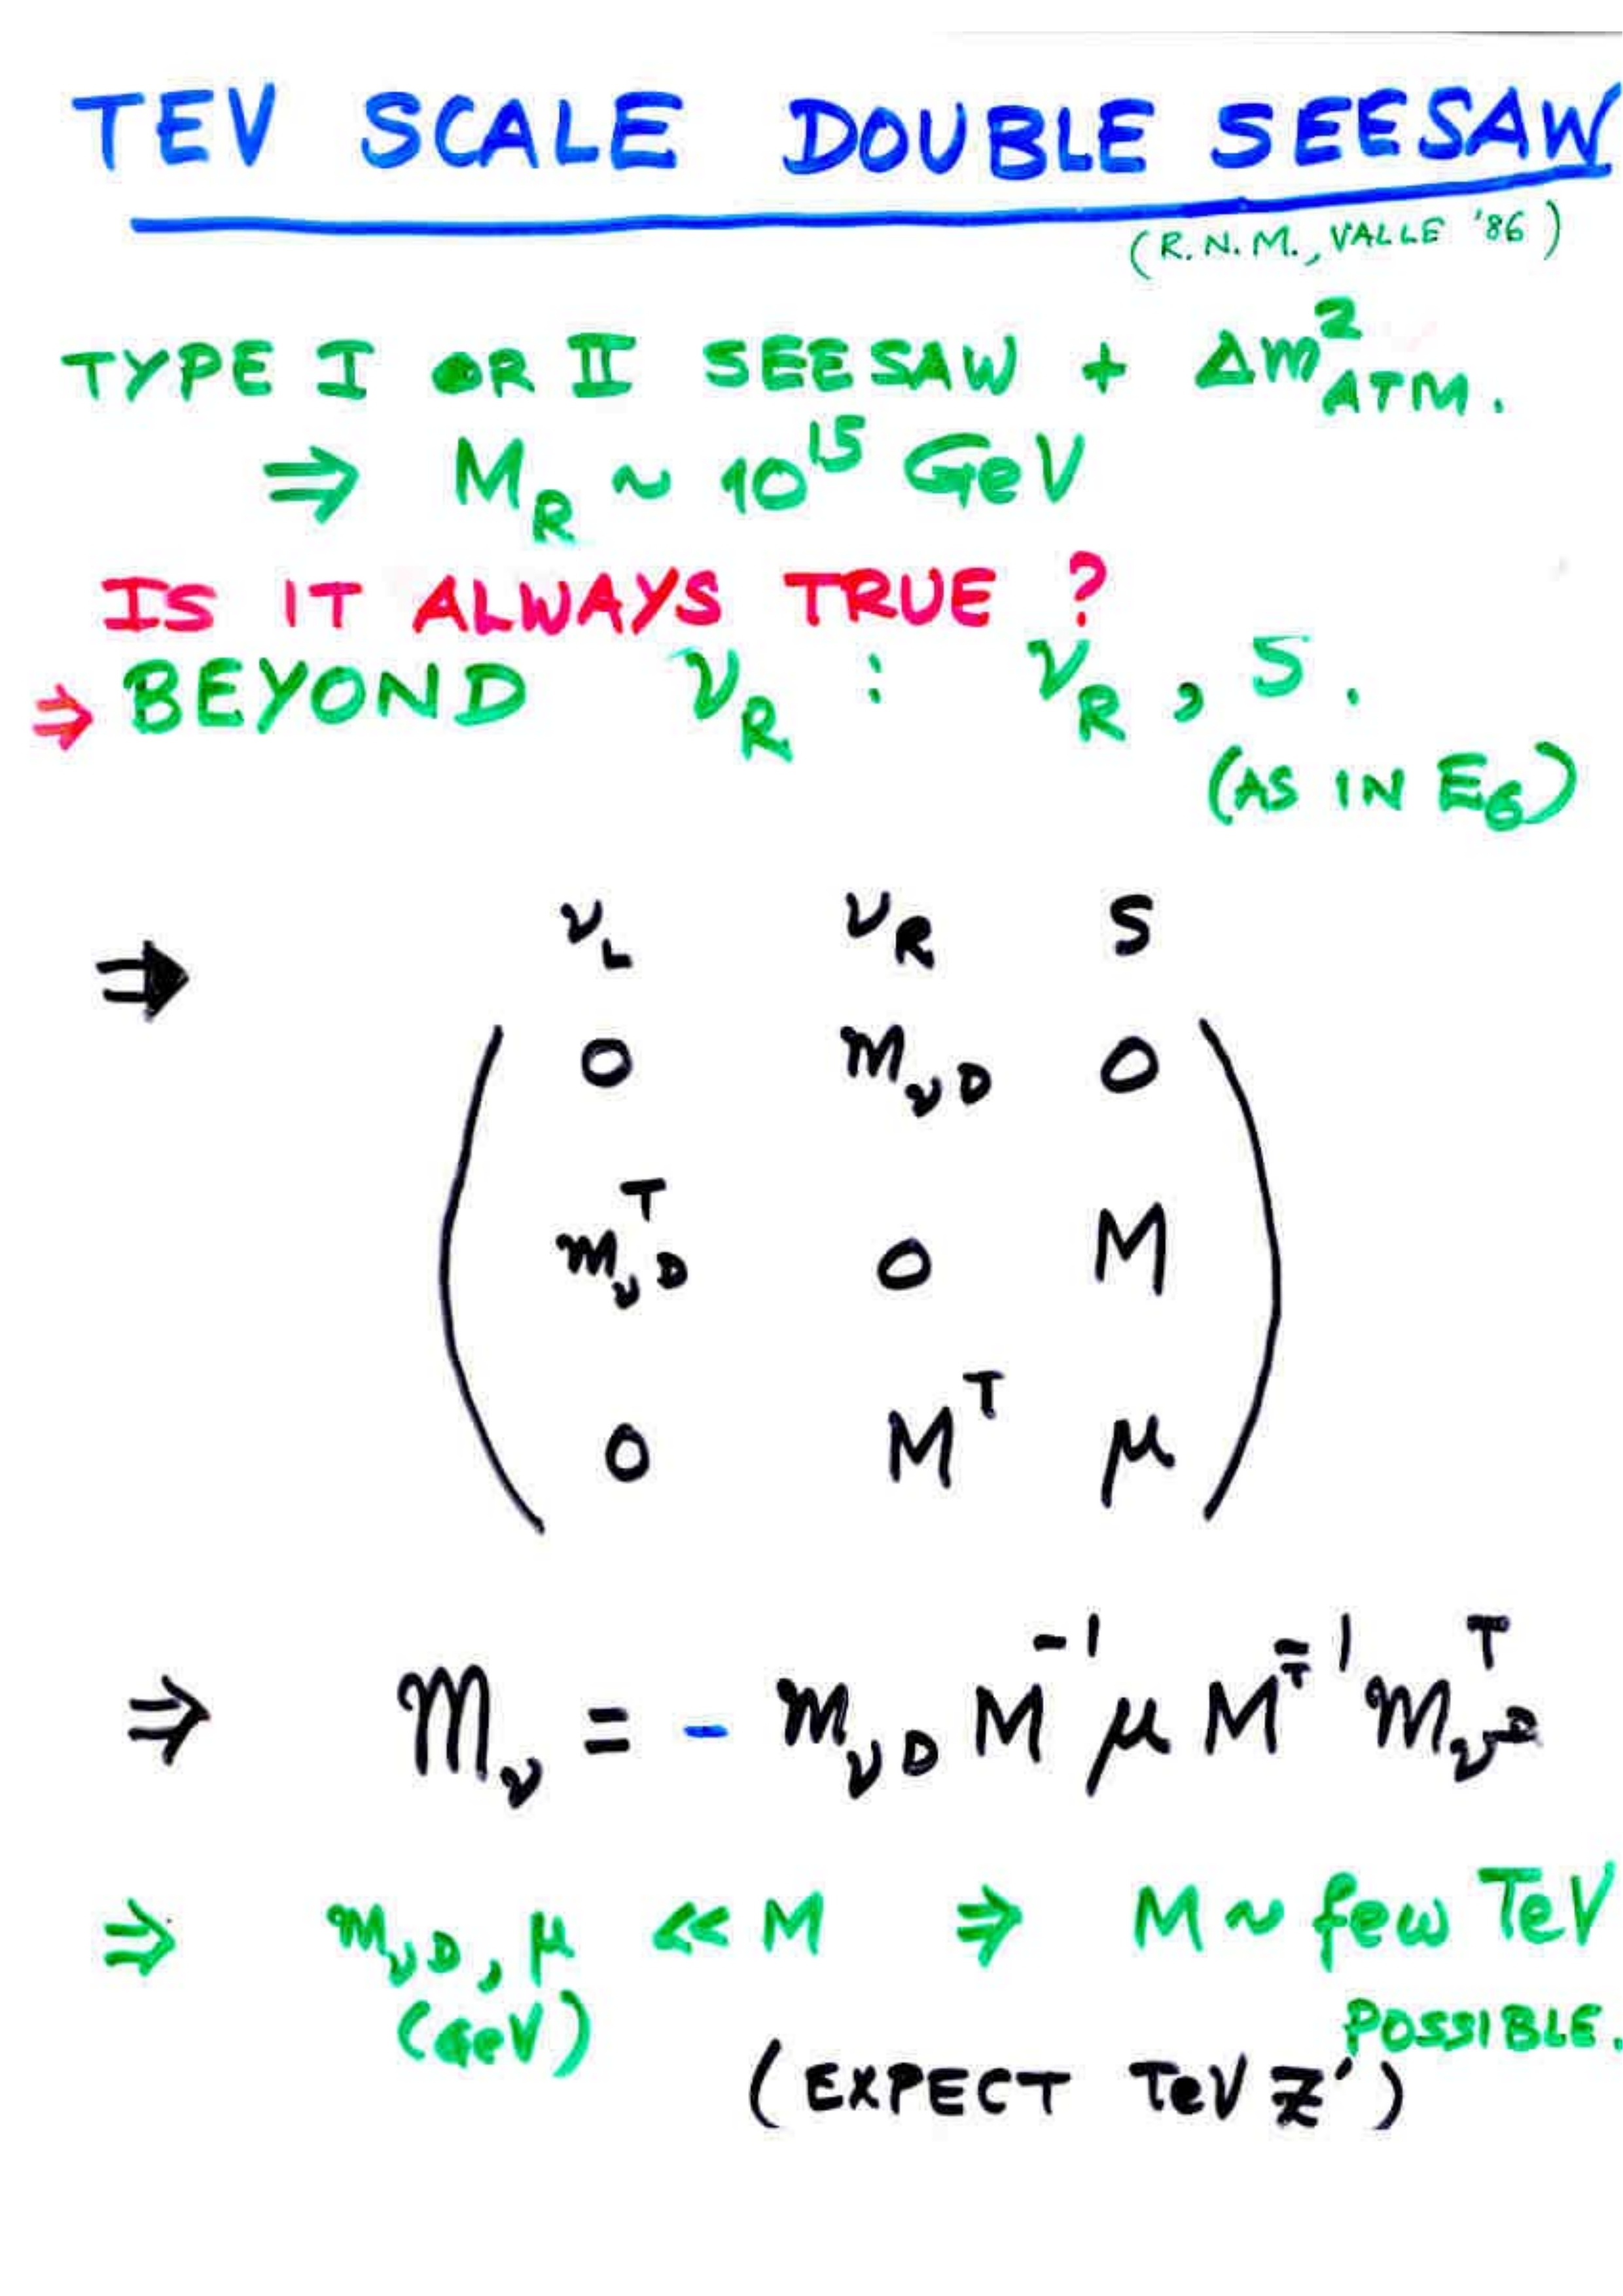 TEV SCALE DOUBLE SEESAW
(R.N.M., VALLE '86)
TYPE I OR II SEESAW + Δm²ATM.
⇒ M_R ~ 10^15 GeV
IS IT ALWAYS TRUE ?
⇒ BEYOND ν_R : ν_R , S .
(AS IN E6)
⇒ ν_L ν_R S
0 m_νD 0
m_νD^T 0 M
0 M^T μ
⇒ m_ν = - m_νD M^-1 μ M^T^-1 m_νD^T
⇒ m_νD, μ << M ⇒ M ~ few TeV
(GeV) POSSIBLE.
(EXPECT TeV Z')